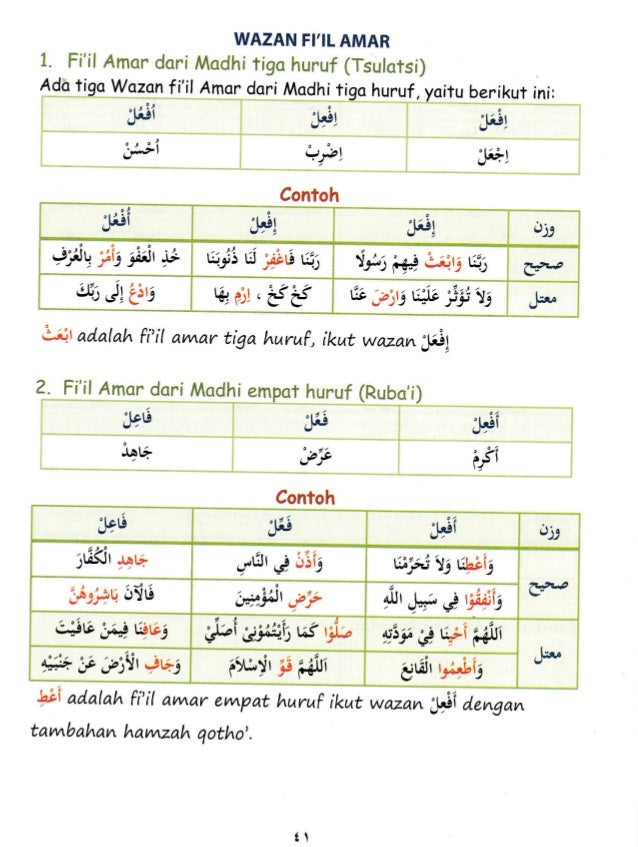 WAZAN FI'IL AMAR
1. Fi'il Amar dari Madhi tiga huruf (Tsulatsi)
Ada tiga Wazan fi'il Amar dari Madhi tiga huruf, yaitu berikut ini:
اِفْعَلْ اِفْعِلْ اُفْعُلْ
اِجْعَلْ اِضْرِبْ اُحْسُنْ
Contoh
وزن إِفْعَلْ إِفْعِلْ أُفْعُلْ
صحيح رَبَّنَا وَابْعَثْ فِيهِمْ رَسُولًا رَبَّنَا فَاغْفِرْ لَنَا ذُنُوبَنَا خُذِ الْعَفْوَ وَأْمُرْ بِالْعُرْفِ
معتل وَلَا تُؤَثِّرْ عَلَيْنَا وَارْضَ عَنَّا كَخْ كَخْ ، اِرْمِ بِهَا وَادْعُ إِلَى رَبِّكَ
ابْعَثْ adalah fi'il amar tiga huruf, ikut wazan إِفْعَلْ
2. Fi'il Amar dari Madhi empat huruf (Ruba'i)
أَفْعِلْ فَعِّلْ فَاعِلْ
أَكْرِمْ عَرِّضْ جَاهِدْ
Contoh
وزن أَفْعِلْ فَعِّلْ فَاعِلْ
صحيح وَأَعْطِنَا وَلَا تُحَرِّمْنَا وَأَذِّنْ فِي النَّاسِ جَاهِدِ الْكُفَّارَ
وَأَنْفِقُوْا فِي سَبِيلِ اللَّهِ حَرِّضِ الْمُؤْمِنِينَ فَالْآنَ بَاشِرُوهُنَّ
معتل اللَّهُمَّ أَحْيِنَا فِيْ مَوَدَّتِهِ صَلُّوْا كَمَا رَأَيْتُمُوْنِيْ أُصَلِّيْ وَعَافِنَا فِيمَنْ عَافَيْتَ
وَأَطْعِمُوا الْقَانِعَ اللَّهُمَّ قَوِّ الْاِسْلَامَ وَجَافِ الْأَرْضَ عَنْ جَنْبَيْهِ
أَعْطِ adalah fi'il amar empat huruf ikut wazan أَفْعِلْ dengan
tambahan hamzah qotho'.
٤١